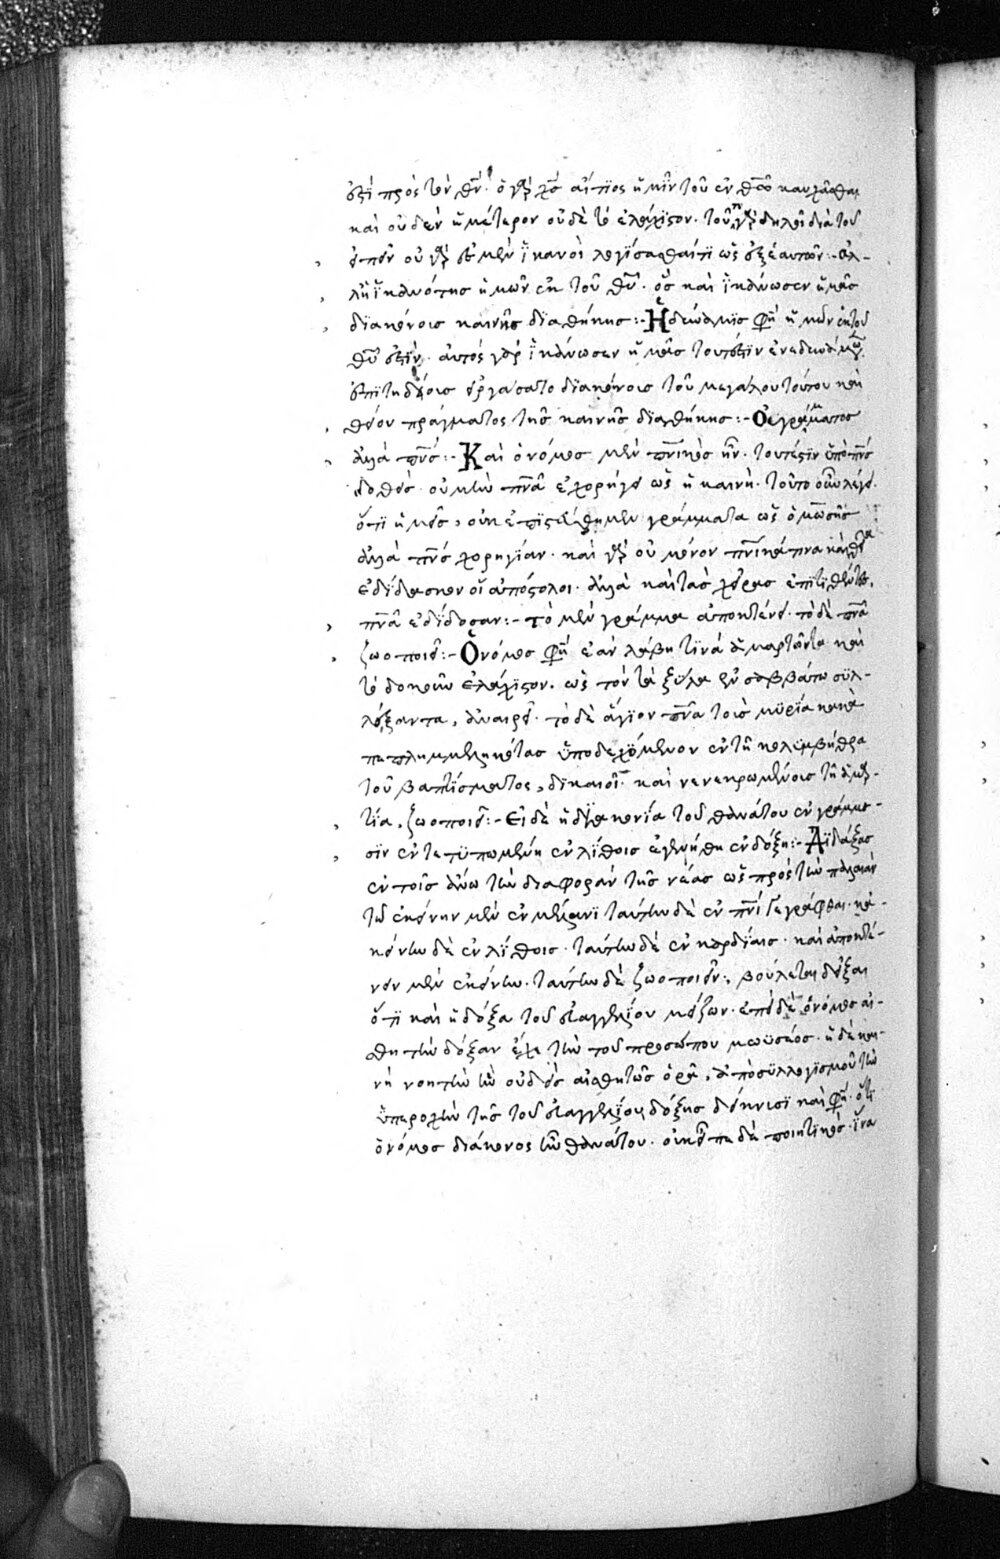 ἐστὶ πρὸς τὸν θν̄. ὁ γὰρ χς̄ αἴτιος ἡμῖν τοῦ ἐν θῶ καυχᾶσθαι
καὶ οὐδὲν ἡμέτερον οὐδὲ τὸ ἐλάχιστον. τοῦτο γὰρ δηλοῖ διὰ τοῦ
εἰπεῖν οὐ γὰρ ἐσμὲν ἱκανοὶ λογίσασθαί τι ὡς ἐξ ἑαυτῶν:- ἀλ-
λ' ἡ ἱκανότης ἡμῶν ἐκ τοῦ θῡ. ὃς καὶ ἱκάνωσεν ἡμᾶς
διακόνους καινῆς διαθήκης:- Ἡ δύναμις φη ἡμῶν ἐκ τοῦ
θῡ ἐστίν. αὐτὸς γὰρ ἱκάνωσεν ἡμᾶς τουτέστιν ἐνεδυνάμου.
ἐπιτηδείους εἰργάσατο διακόνους τοῦ μεγάλου τούτου καὶ
θείου πράγματος τῆς καινῆς διαθήκης:- Οὐ γράμματος
ἀλλὰ πνς̄:- Καὶ ὁ νόμος μὲν πνικὸς ἦν. τουτέστιν ὑπὸ πνς̄
δοθείς. οὐ μὴν πνᾱ ἐχορήγει ὡς ἡ καινή. τοῦτο οὖν λέγει.
ὅτι ἡμεῖς, οὐκ ἐπιστεύθημεν γράμματα ὡς ὁ μωσῆς
ἀλλὰ πνς̄ χορηγίαν. καὶ γὰρ οὐ μόνον πνικά τινα καὶ θεῖα
ἐδίδασκον οἱ ἀπόστολοι. ἀλλὰ καὶ τὰς χεῖρας ἐπιτιθέντες,
πνᾱ ἐδίδοσαν:- τὸ μὲν γράμμα ἀποκτένει. τὸ δὲ πνᾱ
ζωοποιεῖ:- Ὁ νόμος φη ἐὰν λάβῃ τινὰ ἁμαρτόντα καὶ
τὸ δοκοῦν ἐλάχιστον. ὡς τὸν τὰ ξύλα ἐν σαββάτω συλ-
λέξαντα, ἀναιρεῖ. τὸ δὲ ἅγιον πνᾱ τοὺς μυρία κακὰ
πεπλημμεληκότας ὑποδεχόμενον ἐν τῇ κολυμβήθρα
τοῦ βαπτίσματος, δικαιοῖ. καὶ νενεκρωμένους τῇ ἁμαρ-
τία, ζωοποιεῖ:- Εἰ δὲ ἡ διακονία τοῦ θανάτου ἐν γράμμα-
σιν ἐντετυπωμένη ἐν λίθοις ἐγενήθη ἐν δόξη:- Διδάξας
ἐν τοῖς ἄνω τὴν διαφορὰν τῆς νέας ὡς πρὸς τὴν παλαιὰν
τῶ ἐκείνην μὲν ἐν μέλανι ταύτην δὲ ἐν πνι γεγράφθαι. κἀ-
κείνην δὲ ἐν λίθοις. ταύτην δὲ ἐν καρδίαις. καὶ ἀποκτέ-
νειν μὲν ἐκείνην. ταύτην δὲ ζωοποιεῖν, βούλεται δεῖξαι
ὅτι καὶ ἡ δόξα τοῦ εὐαγγελίου μείζων. ἐπεὶ δὲ ὁ νόμος αἰ-
σθητὴν δόξαν εἶχε τὴν τοῦ προσώπου μωϋσέος. ἡ δὲ και-
νὴ νοητὴν ἣν οὐδεὶς αἰσθητῶς ὁρᾶ, ἀπὸ συλλογισμοῦ τὴν
ὑπεροχὴν τῆς τοῦ εὐαγγελίου δόξης δείκνυσι καὶ φη. ὅτι
ὁ νόμος διάκονος ἦν θανάτου. οὐκ εἶπε δὲ ποιητικός. ἵνα